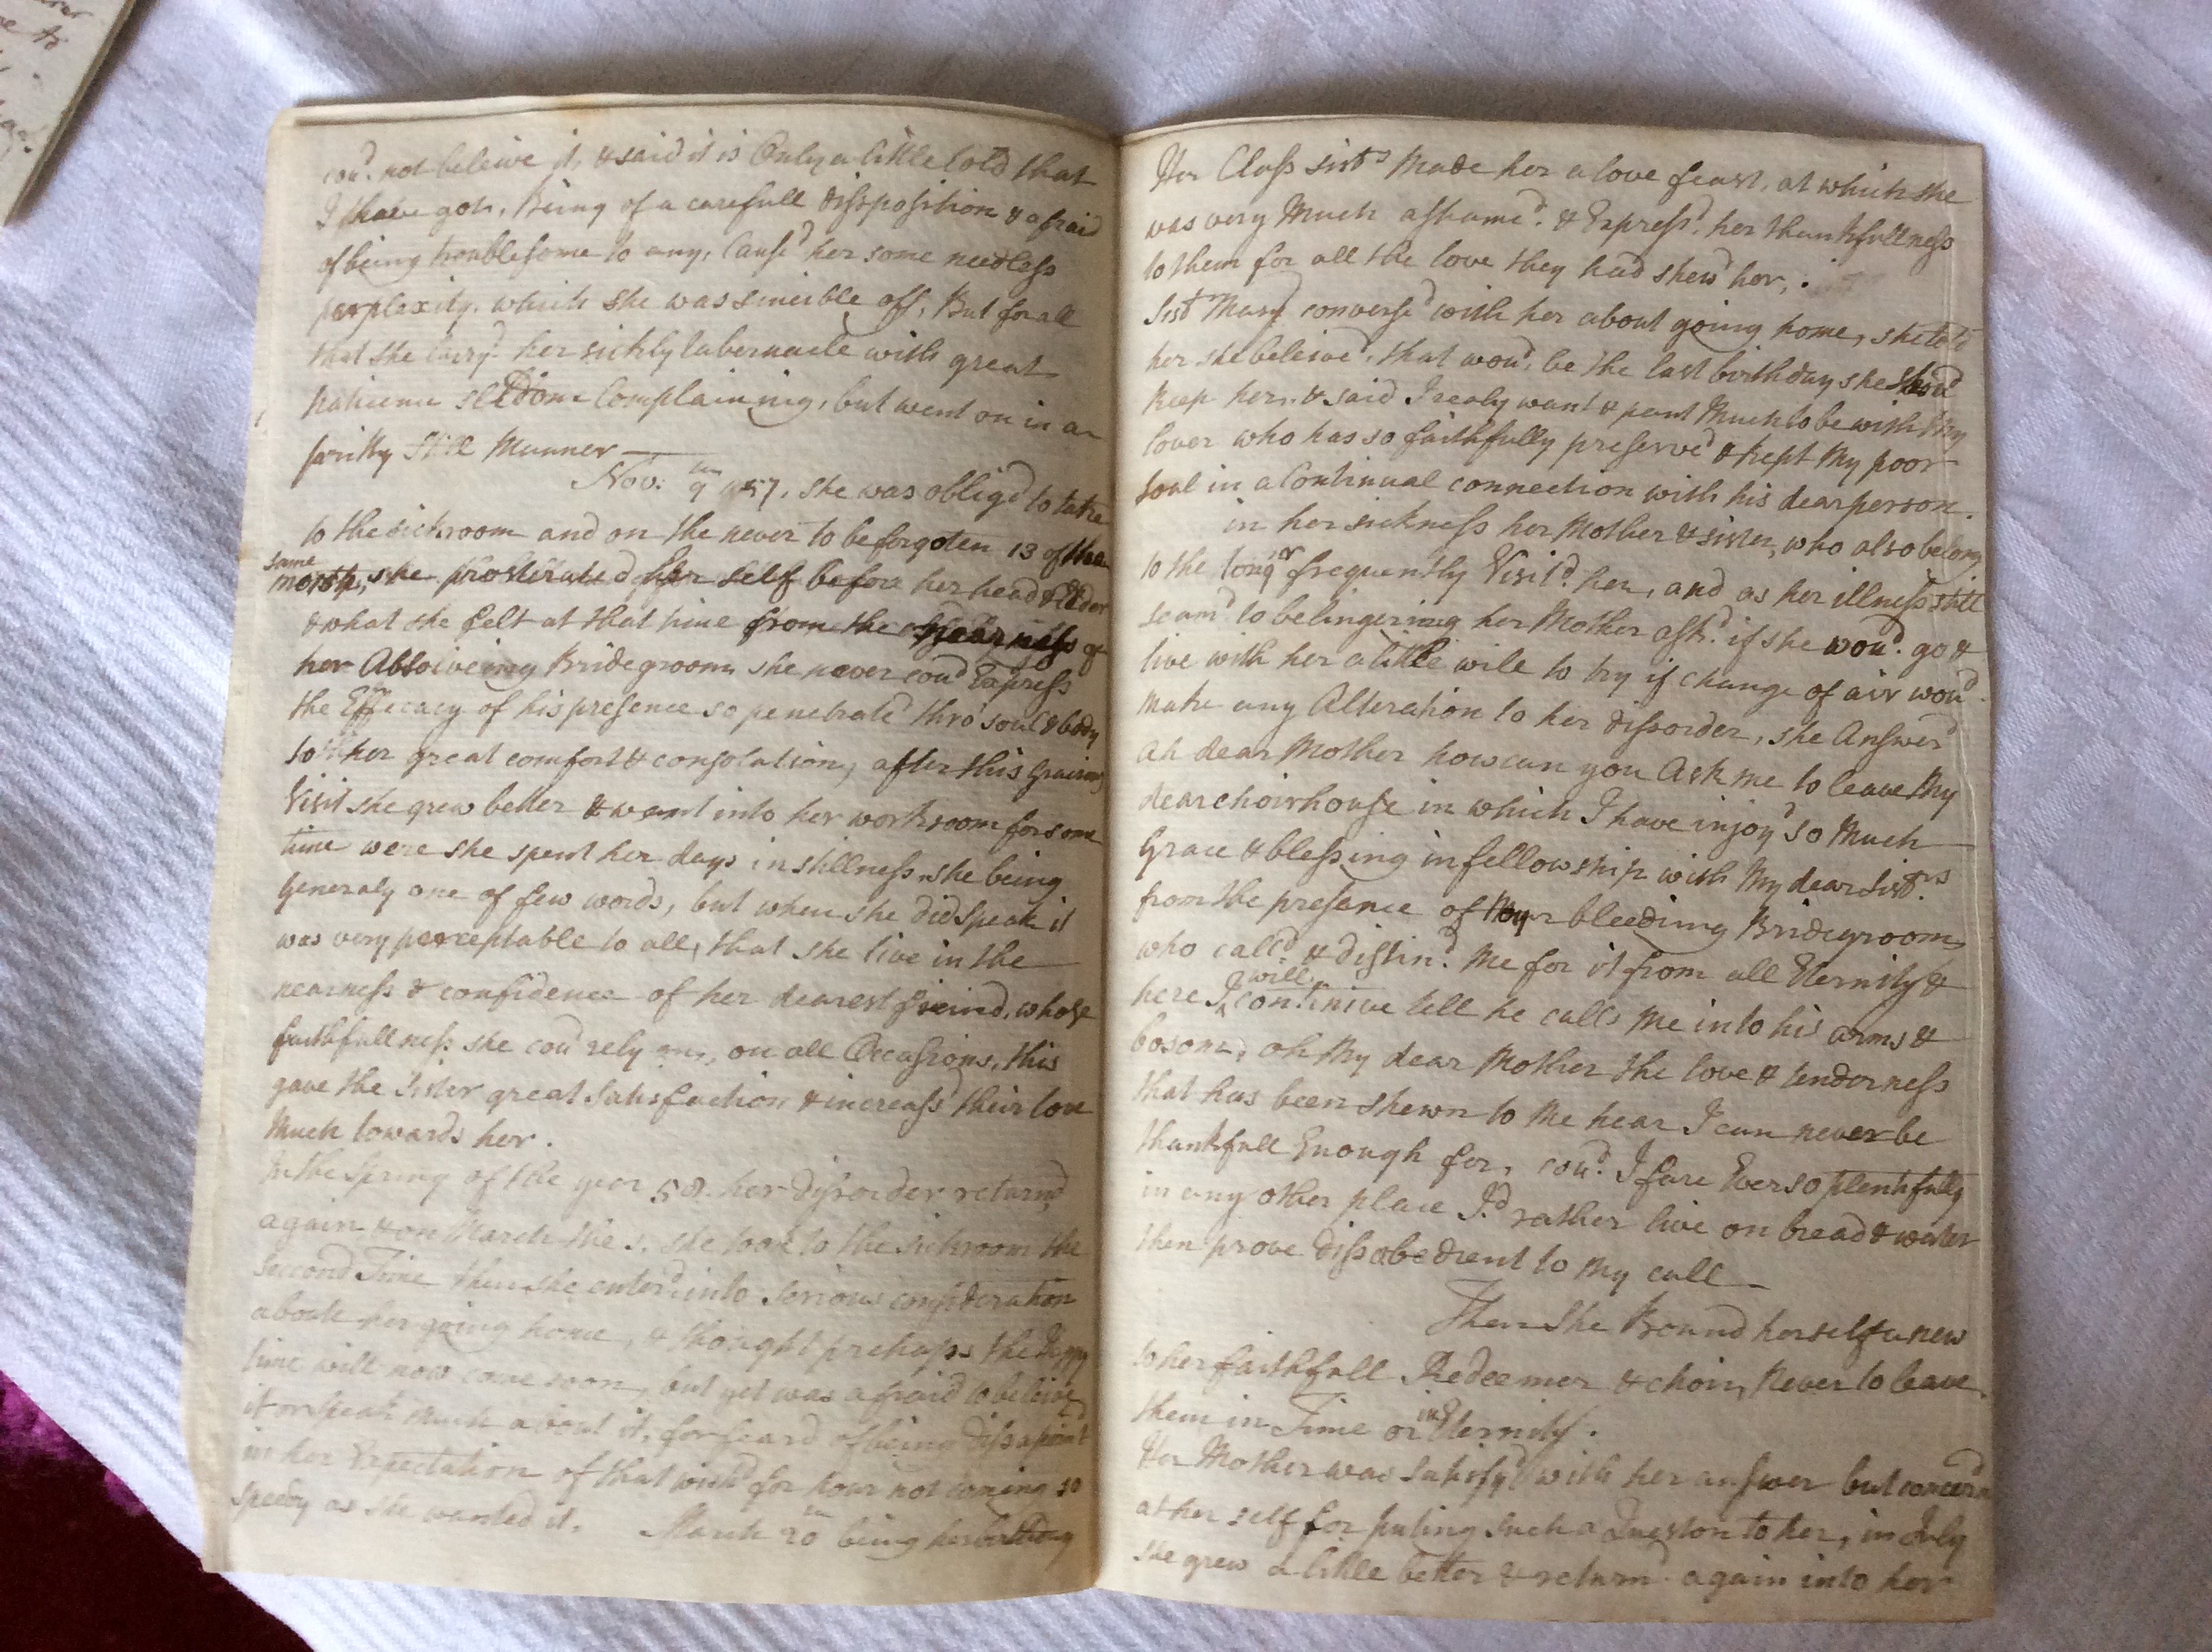 cou'd not beleive it, & said it is Only a little Cold that
I have got, Being of a carefull dissposition & afraid
of being troublesome to any, Caus'd her some needless
perplexity, which she was sincible off, But for all
that she Carry'd her sickly tabernacle with great
Patience seldom Complaining, but went on in a
still Manner
Nov: 9th 1757, she was oblig'd to take
to the sickroom and on the never to be forgoten 13 of the
same
month, she prosterated her self before her head Elder
& what she felt at that time from the nearness of
her Absolveing Bridegroom she never cou'd Express
the Effecacy of his presence so penetrate'd thro' soul & body
to her great comfort & consolation, after this Gracious
Visit she grew better & went into her workroom for some
time were she spent her days in stillness, she being
generaly one of few words, but when she did speak it
was very perceptable to all, that she live in the
nearness & confidence of her dearest freind, whose
faithfullness she cou'd rely on, on all Occasions, this
gave the Sister great Satisfaction & increass'd their love
Much towards her.
In the Spring of the year 58. her dissorder return'd
again & on March the 1. she took to the sickroom the
Second Time then she enter'd into Serious consideration
about her going home, & thought prehaps the Happy
time will now come soon, but yet was afraid to beleive
it or speak much about it, for feard of being dissapoint'd
in her Expectation of that wish'd for hour not coming so
speedy as she wanted it. March 20th being her birthday
Her Class sistrs Made her a love feast, at which she
was very Much ashame'd. & Express'd her thankfullness
to them for all the love they had shew'd her,.
Sistr Mary convers'd with her about going home, she told
her she beleive'd, that wou'd be the last birthday she shou'd
keep here, & said I realy want & pant Much to be with My
lover who has so faithfully preserve'd & kept My poor
Soul in a Continual connection with his dear person.
in her sickness her Mother & sister, who also belong
to the Congr frequently Visit'd her, and as her illness still
seam'd to be lingering her Mother ask'd if she wou'd go &
live with her a little wile to try if change of air wou'd
Make any Alteration to her dissorder, she Answer'd
ah dear Mother how can you Ask me to leave My
dear choirhouse in which I have injoy'd so Much
Grace & blessing in fellowship with My dear Sistrs
from the presence of My bleeding Bridegroom
who call'd & distin'd Me for it from all Eternity &
will
here I continiue till he calls Me into his arms &
bosom, oh My dear Mother the love & tenderness
that has been shewn to Me hear I can never be
thankfull Enough for, cou'd I fare Ever so plentifully
in any other place I'd rather live on bread & water
then prove dissobedient to My call
Then She Bound herself a new
to her faithfull Redeemer & choir, Never to leave
them in Time or in Eternity.
Her Mother was Satisfy'd with her answer but concern'd
at her self for puting such a Queston to her, in July
she grew a little better & return'd again into her